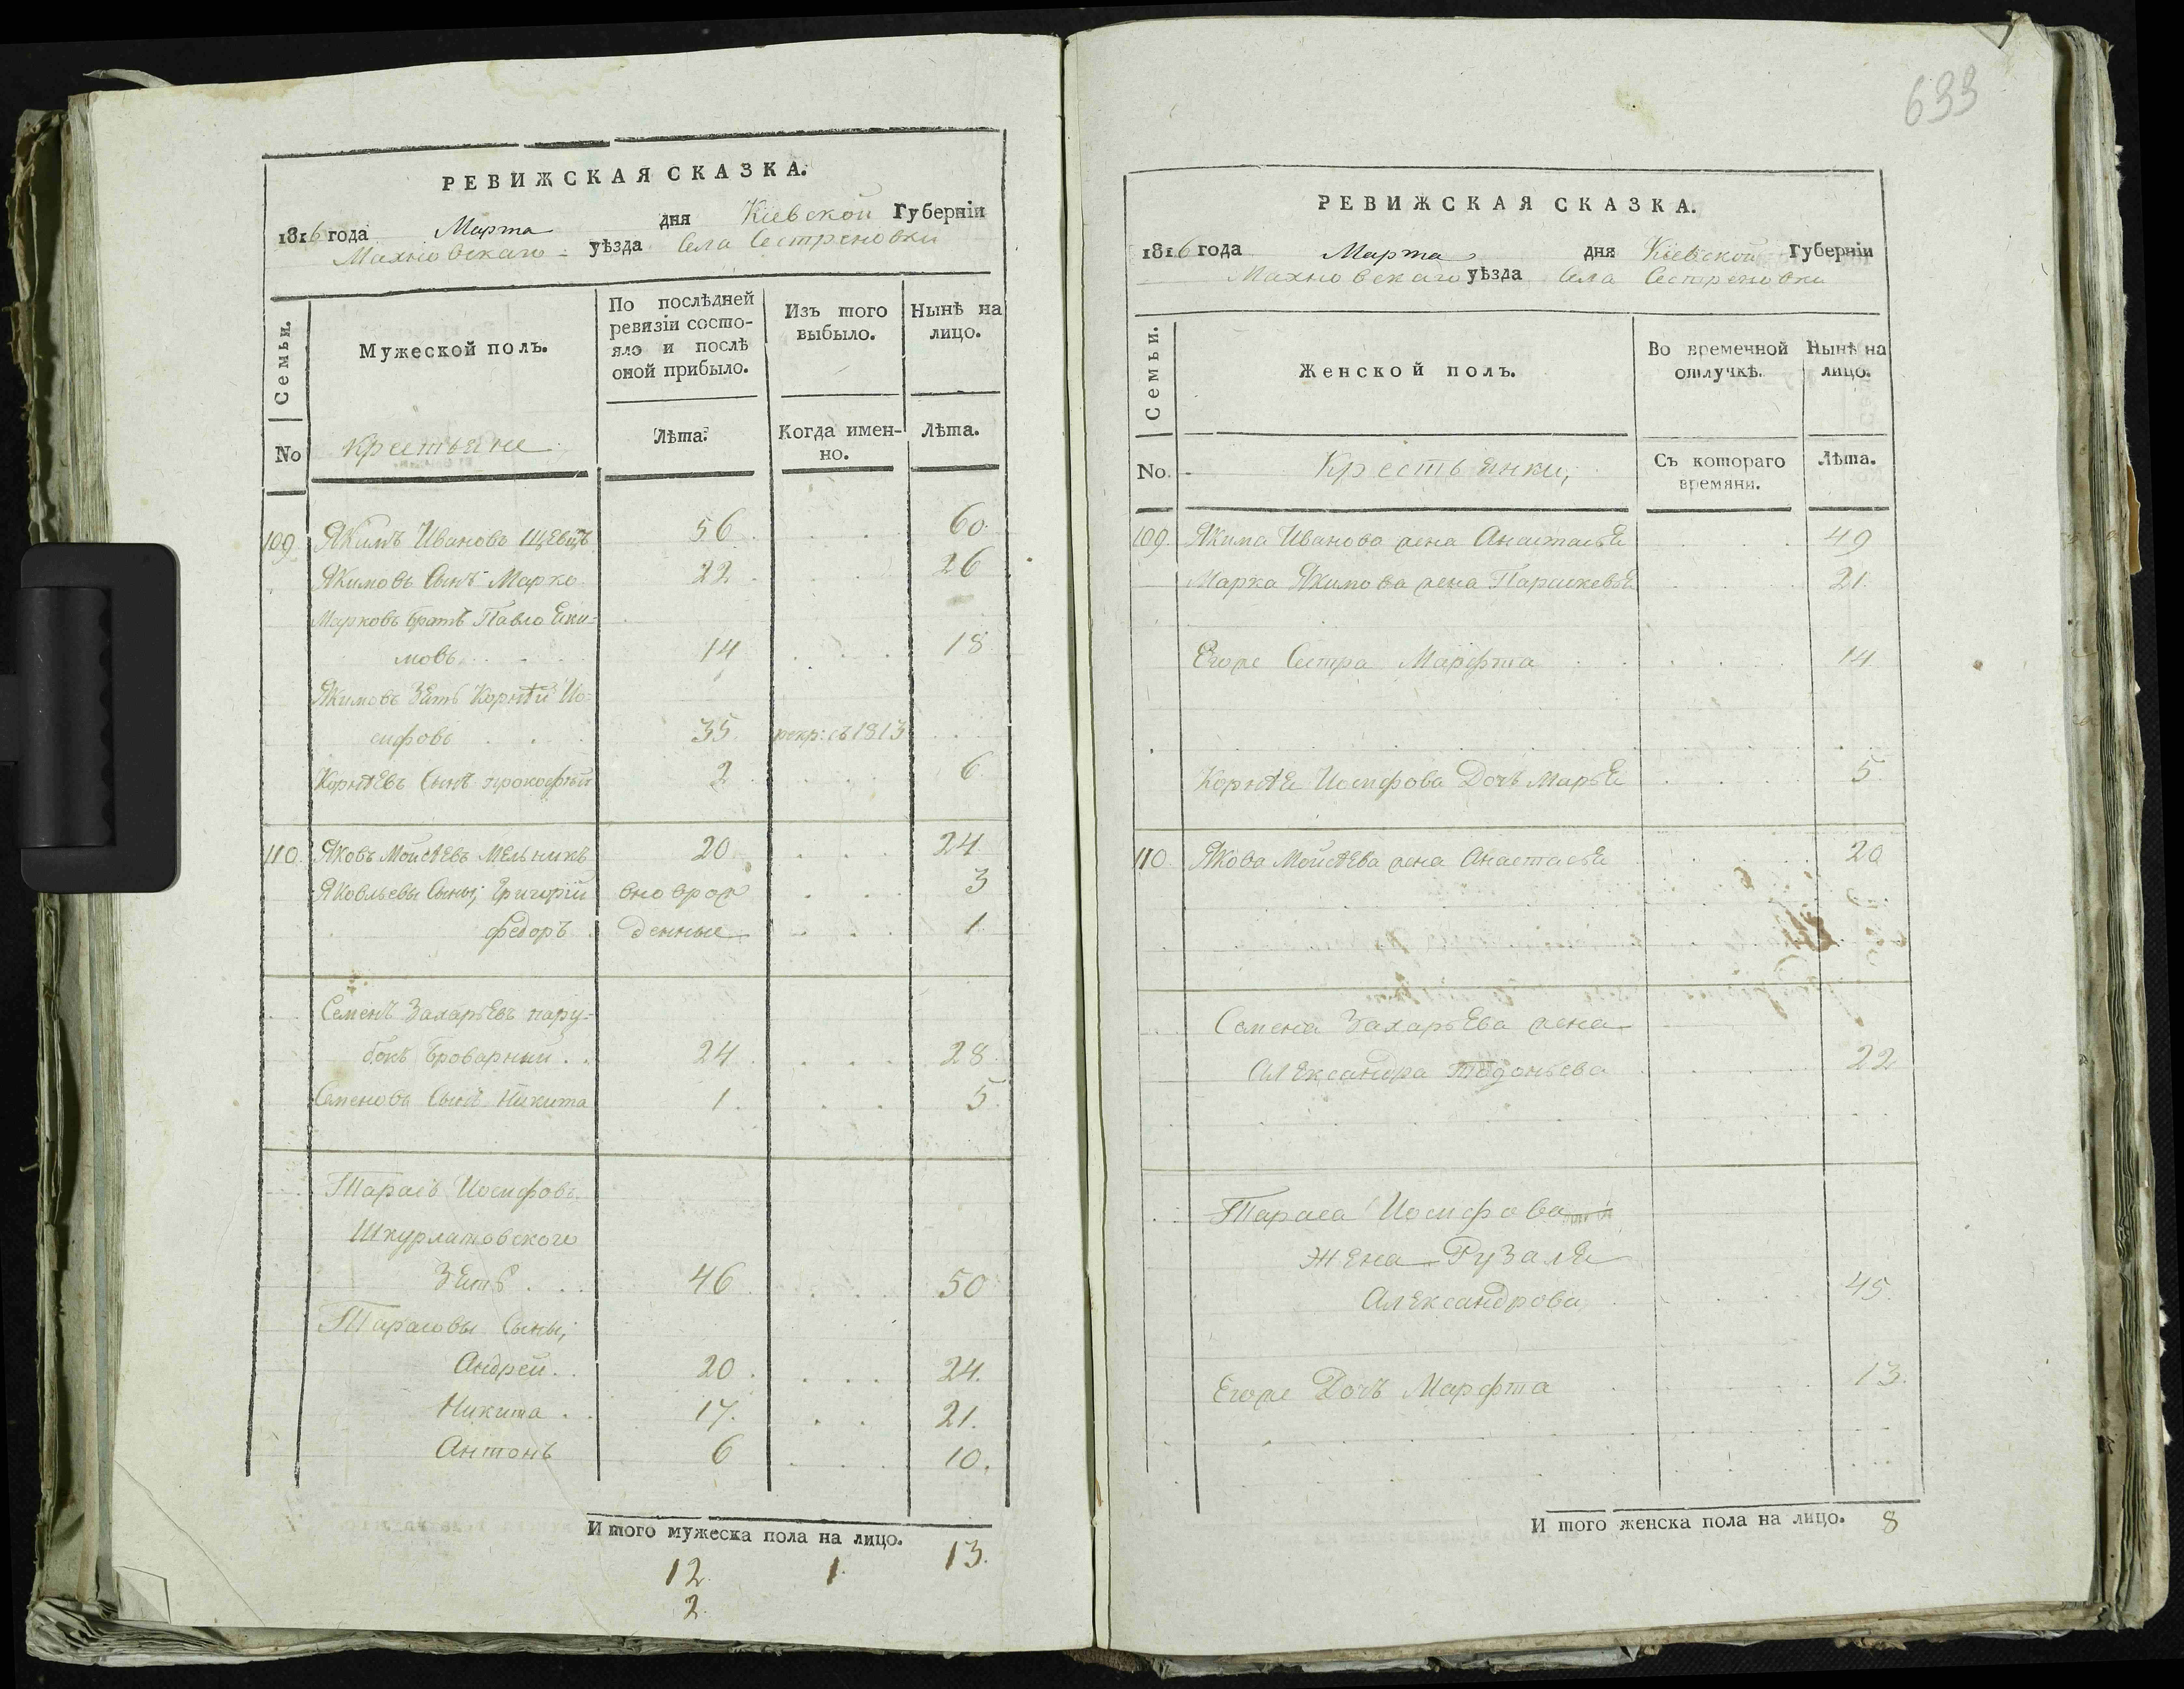 РЕВИЖСКАЯ СКАЗКА.
1816 года Марта дня Кіевской Губерніи
Махновскаго уѣзда Села Сестреновки
Семьи.
Мужеской полъ.
По послѣдней
ревизіи состо-
яло и послѣ
оной прибыло.
Изъ того
выбыло.
Нынѣ на
лицо.
No
Крестьяне
Лѣта.
Когда имен-
но.
Лѣта.
109. Якимъ Ивановъ Щевцъ 56 60.
Якимовъ Сынъ Марко 22 26
Марковъ братъ Павло Яки-
мовъ 14 18
Якимовъ Зять Корнѣй Ио-
сифовъ 35. рекр: съ 1813
Корнѣевъ Сынъ прокофѣй 2 6
110. Яковъ Мойсѣевъ Мельникъ 20 24
Яковлевы Сыны; Григорій вновърож 3
федоръ. денные 1
Семенъ Захарьевъ пару-
бокъ Броварный.. 24 28.
Семеновъ Сынъ Никита 1. 5.
Тарасъ Иосифовъ
Шкурлатовского
Зять... 46 50
Тарасовы Сыны;
Андрей.. 20. 24.
Никита.. 17. 21.
Антонъ 6 10.
И того мужеска пола на лицо.
12. 1. 13.
2.
633
РЕВИЖСКАЯ СКАЗКА.
1816 года Марта дня Кіевской Губерніи
Махновскаго уѣзда Села Сестреновки
Семьи.
Женской полъ.
Во временной
отлучкѣ.
Нынѣ на
лицо.
No.
Крестьянки,
Съ котораго
времяни.
Лѣта.
109. Якима Иванова жена Анастасья 49
Марка Якимова жена Параскевья 21.
Егоже Сестра Марфта 14
Корнѣя Иосифова Дочь Марья 5.
110. Якова Мойсѣева жена Анастасья 20
Семена Захарьева жена
Александра 22
Тараса Иосифова
жена Рузаля
Александрова 45.
Егоже Дочь Марфта 13.
И того женска пола на лицо. 8